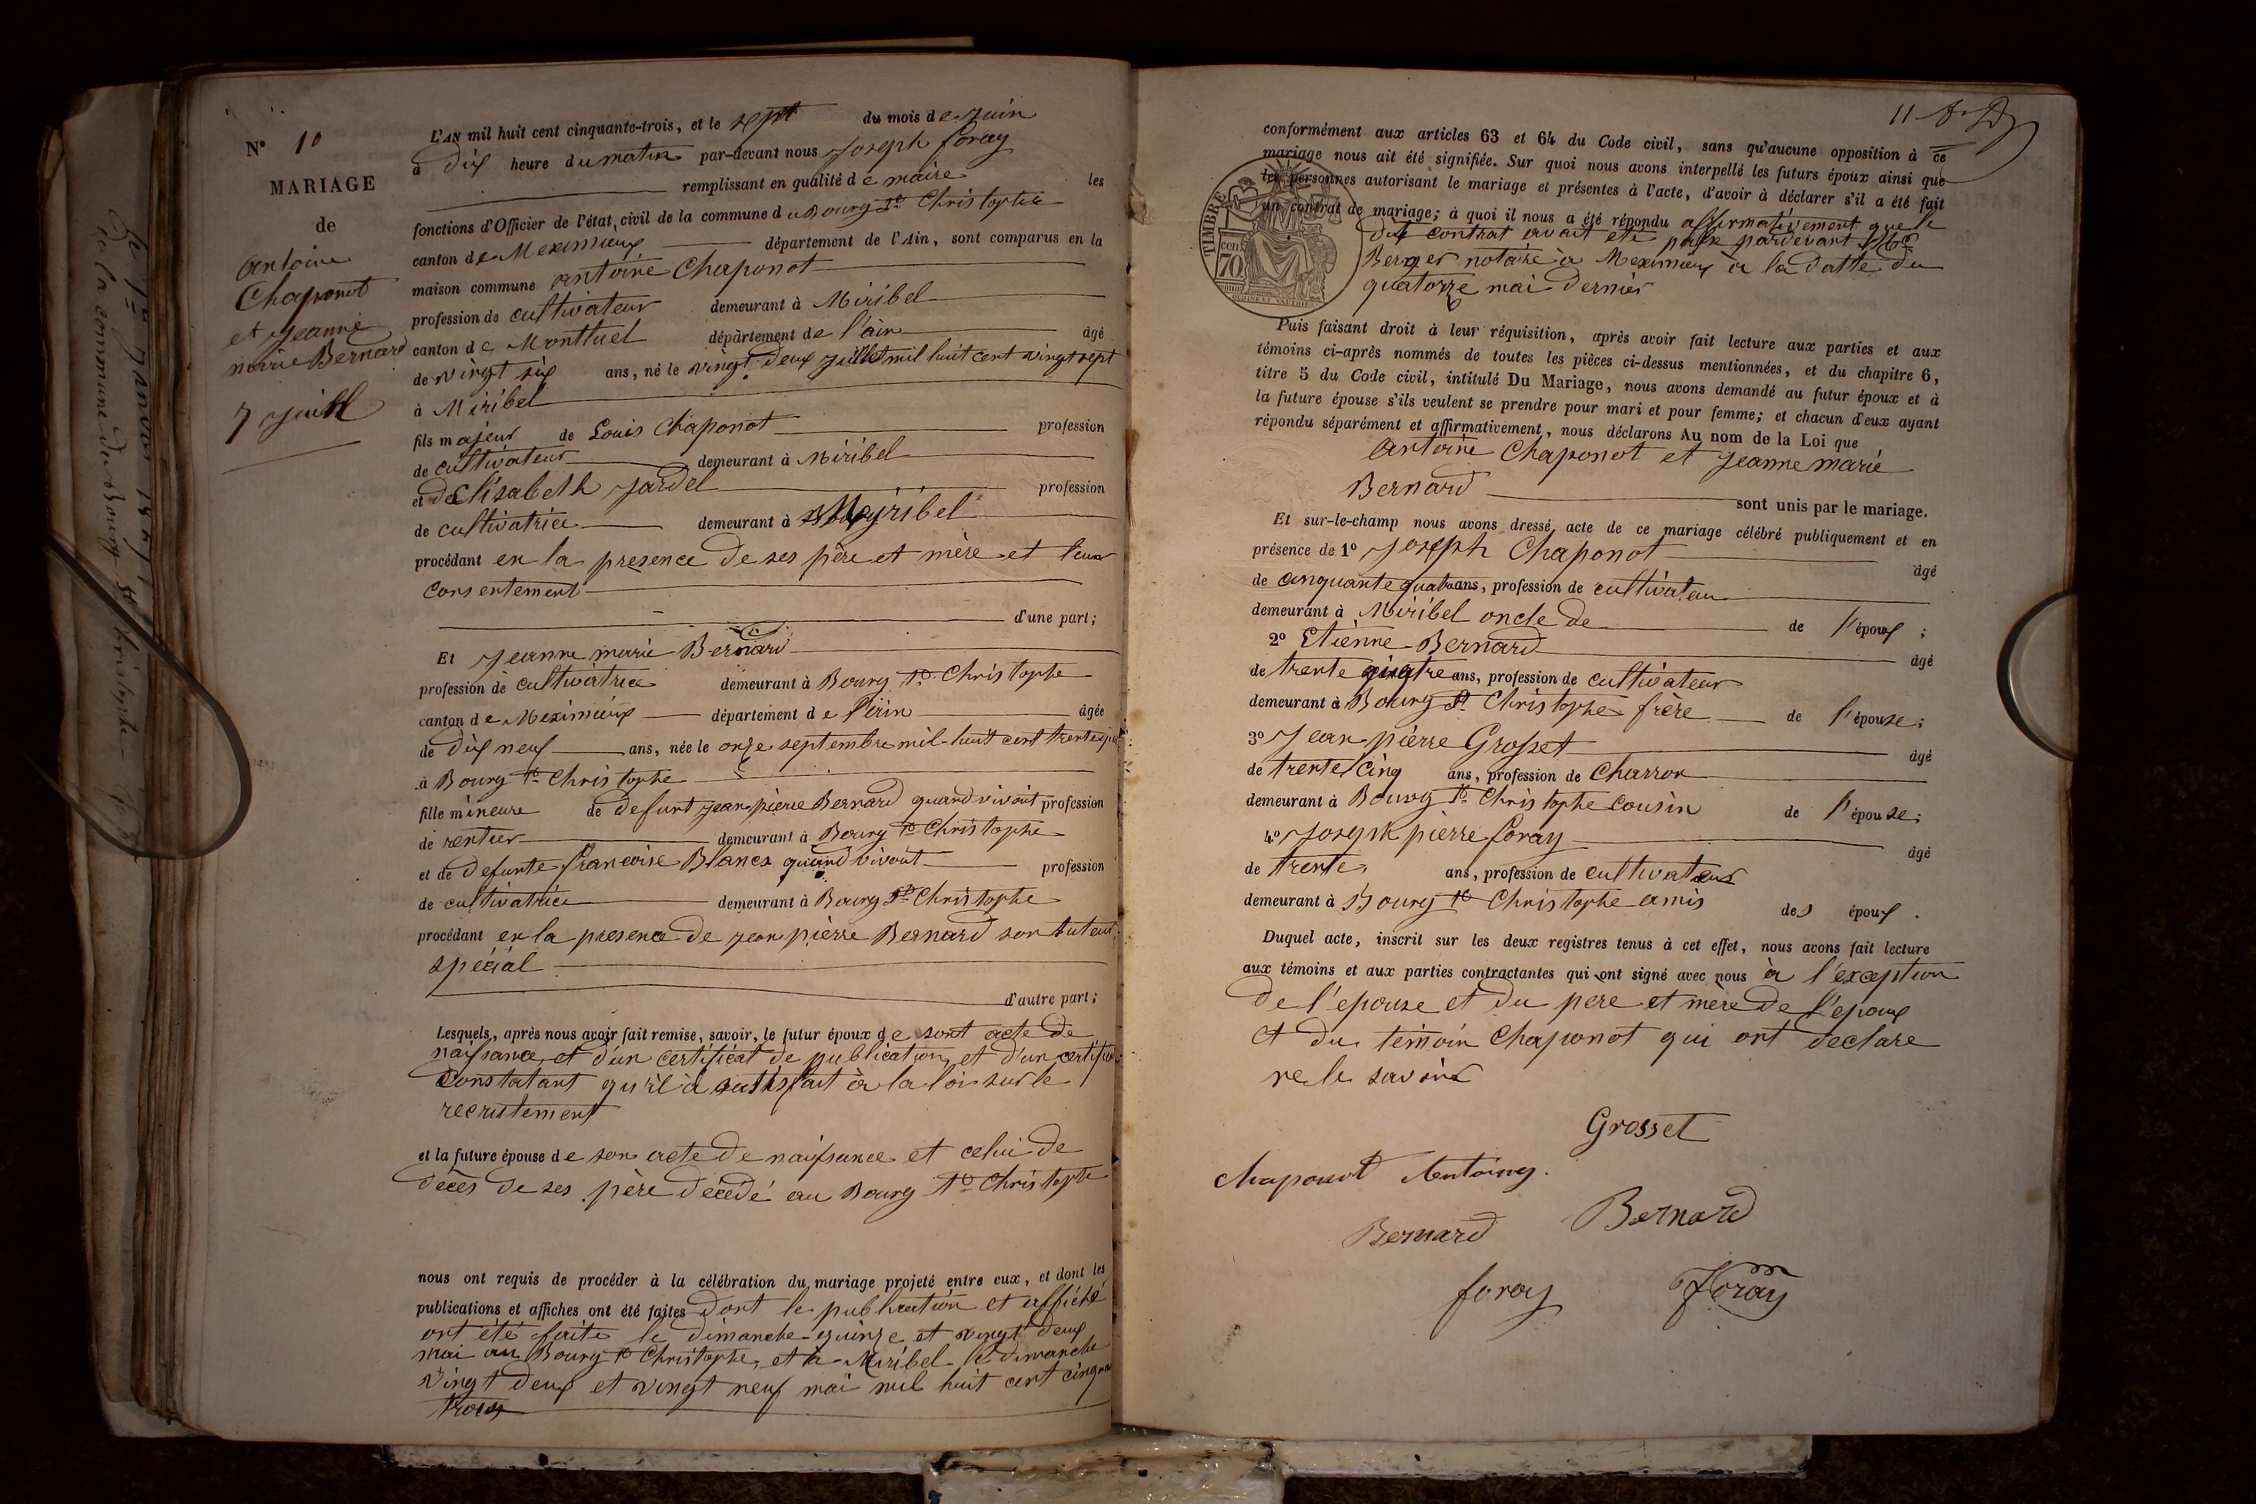 N° 10
MARIAGE
de
antoine
Chaponot
et jeanne
marie Bernard
7 juin
L'AN mil huit cent cinquante-trois, et le sept du mois de juin
à dix heure du matin par-devant nous joseph foray
remplissant en qualité de maire les
fonctions d'Officier de l'état civil de la commune du Bourg St Christophe
canton de Meximieux département de l'Ain, sont comparus en la
maison commune antoine Chaponot
profession de cultivateur demeurant à Miribel
canton de Montluel département de l'ain âgé
de vingt six ans, né le vingt deux juillet mil huit cent vingt sept
à Miribel
fils majeur de Louis Chaponot profession
de cultivateur demeurant à Miribel
et de Elisabeth jardel profession
de cultivatrice demeurant à Meyribel
procédant en la presence de ses père et mère et leur
consentement
d'une part;
Et jeanne marie Bernard
profession de cultivatrice demeurant à Bourg St Christophe
canton de Meximieux département de l'ain âgée
de dix neuf ans, née le onze septembre mil huit cent trente
à Bourg St Christophe
fille mineure de defunt jean pierre Bernard quand vivait profession
de rentier demeurant à Bourg St Christophe
et de defunte francoise Blanca quand vivait profession
de cultivatrice demeurant à Bourg St Christophe
procédant en la presence de jean pierre Bernard son tuteur
spécial
d'autre part;
Lesquels, après nous avoir fait remise, savoir, le futur époux de sont acte de
naissance et d'un certificat de publication et d'un certifi
constatant qu'il à satisfait à la loi sur le
recrutement
et la future épouse de son acte de naissance et celui de
décès de ses père décédé au Bourg St Christophe
nous ont requis de procéder à la célébration du mariage projeté entre eux, et dont les
publications et affiches ont été faites dont le publication et affiché
ont été faite le dimanche quinze et vingt deux
mai au Bourg St Christophe, et à Miribel le dimanche
vingt deux et vingt neuf mai mil huit cent cinqua
trois
11
conformément aux articles 63 et 64 du Code civil, sans qu'aucune opposition à ce
mariage nous ait été signifiée. Sur quoi nous avons interpellé les futurs époux ainsi que
les personnes autorisant le mariage et présentes à l'acte, d'avoir à déclarer s'il a été fait
un contrat de mariage; à quoi il nous a été répondu affirmativement que le
dit contrat avait été passé pardevant Me
Berger notaire à Meximieux à la datte du
quatorze mai dernier
TIMBRE
70 cent
Puis faisant droit à leur réquisition, après avoir fait lecture aux parties et aux
témoins ci-après nommés de toutes les pièces ci-dessus mentionnées, et du chapitre 6,
titre 5 du Code civil, intitulé Du Mariage, nous avons demandé au futur époux et à
la future épouse s'ils veulent se prendre pour mari et pour femme; et chacun d'eux ayant
répondu séparément et affirmativement, nous déclarons Au nom de la Loi que
antoine Chaponot et jeanne marie
Bernard sont unis par le mariage.
Et sur-le-champ nous avons dressé acte de ce mariage célébré publiquement et en
présence de 1° joseph Chaponot âgé
de cinquante quatre ans, profession de cultivateur
demeurant à Miribel oncle de de l'époux ;
2° Etienne Bernard âgé
de trente quatre ans, profession de cultivateur
demeurant à Bourg St Christophe frère de l'épouse;
3° jean pierre Grosset âgé
de trente cinq ans, profession de charron
demeurant à Bourg St Christophe cousin de l'épouse;
4° joseph pierre foray âgé
de trente ans, profession de cultivateur
demeurant à Bourg St Christophe amis des époux.
Duquel acte, inscrit sur les deux registres tenus à cet effet, nous avons fait lecture
aux témoins et aux parties contractantes qui ont signé avec nous à l'exception
de l'epouse et du pere et mère de l'epoux
et du témoin chaponot qui ont declare
ne le savoir
Grosset
chaponot Antoine
Bernard Bernard
foray Foray